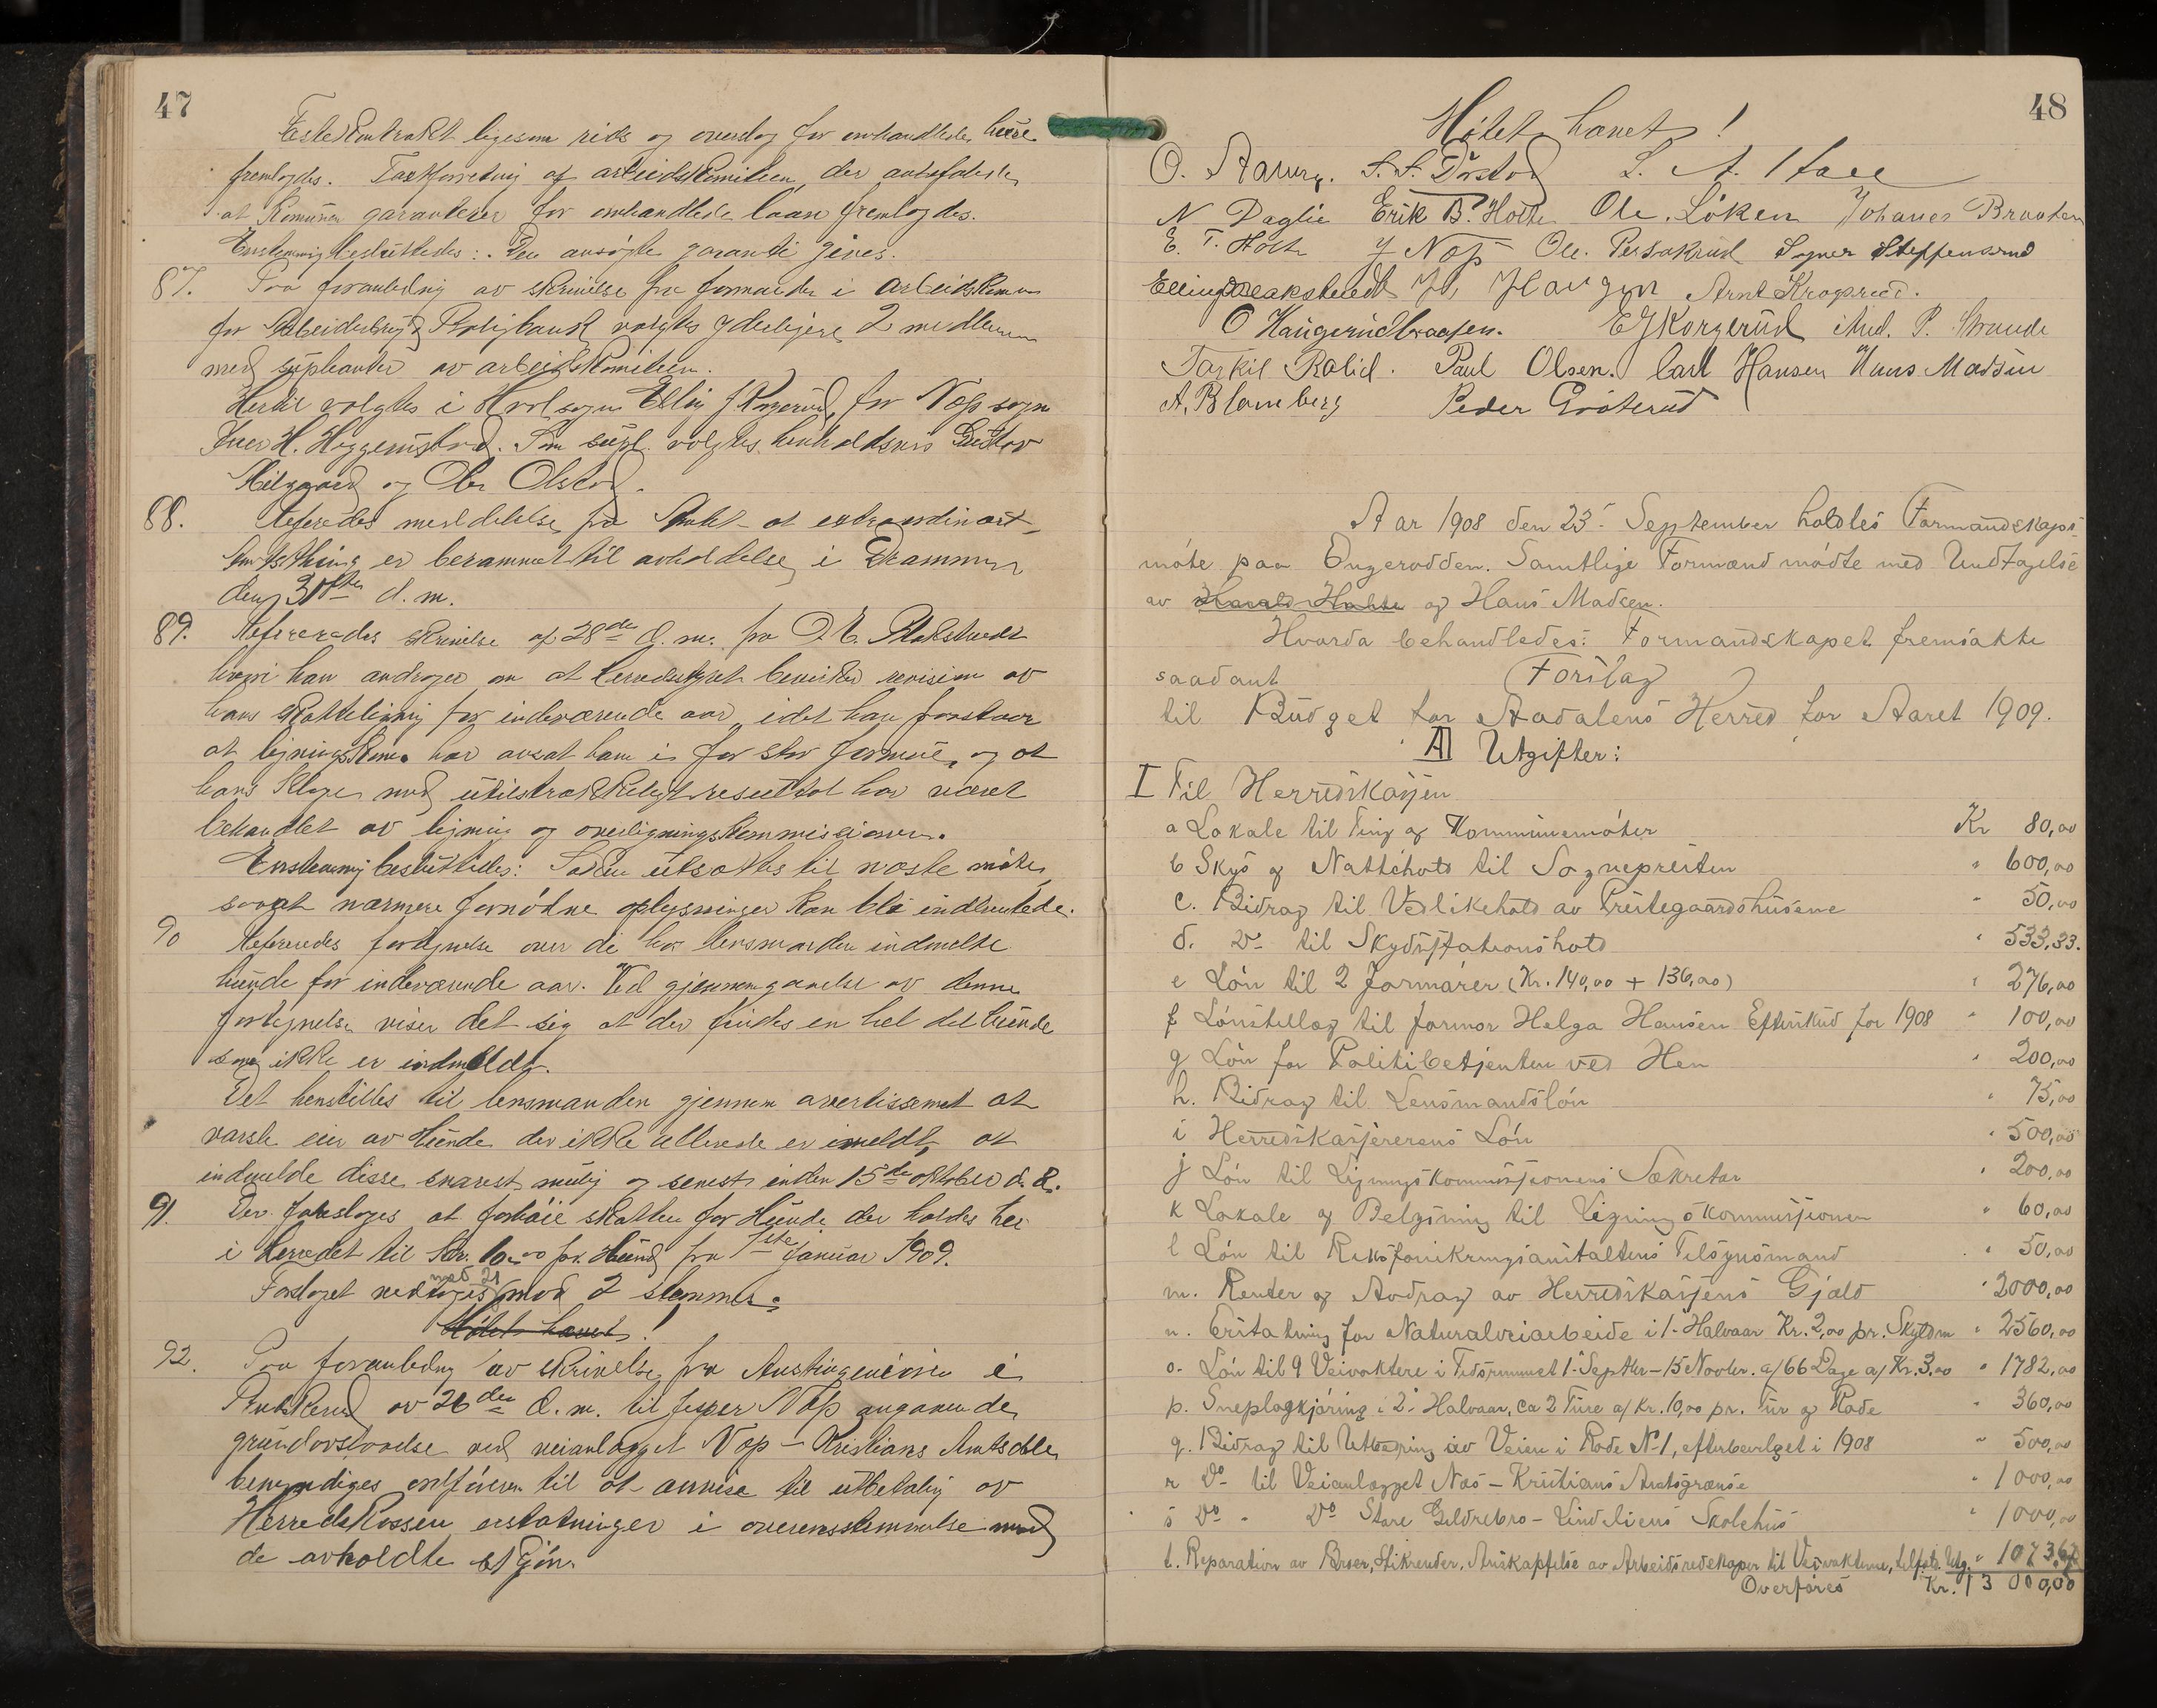 47
Festekontrakt ligesom rids og overslag for omhandlede huse
fremlagdes. Takstforretning af arbeidskomiteen, der anbefaler
at Komunen garanterer for omhandlede laan fremlagdes.
Enstemmig besluttedes: Den ansøgte garanti gives.
87. Paa foranledning av skrivelse fra formanden i Arbeidskomm
for Arbeiderbrug & Boligbank valgtes yderligere 2 medlemmer
med suplanter av arbeidskomiteen.
Hertil valgtes i Hval sogn Elling J Korgerud, for Næs sogn
Iver H. Heggerustad. Som supl. valgtes henholdsvis Gustav
Kilgaard og Ole Olstad.
88. Refereredes meddelelse fra Amtet at extraordinært
Amtsthing er berammet til avholdelse i Drammen
den 31te d. m.
89. Refereredes skrivelse af 28de d. m. fra O. E. Blakstvedt
hvori han andrager om at herredstyret bevirker revision av
hans skatteligning for indeværende aar, idet han forstaar
at ligningskom. har ansat ham i for stor formue, og at
hans klage med utilstrækkeligt resultat har været
behandlet av ligning og overligningskommissionen.
Enstemmig besluttedes: Saken utsættes til næste møte,
saaat nærmere fornødne oplysninger kan bli indhentede.
90 Refereredes fortegnelse over de hos lensmanden indmeldte
hunde for indeværende aar. Ved gjennemgaaelse av denne
fortegnelse viser det sig at der findes en hel del hunde
som ikke er indmeldt.
Det henstilles til lensmanden gjennem avertissement at
varsle eier av Hunde der ikke allerede er imeldt, at
indmelde disse snarest mulig og senest inden 15de oktober d. å.
91. Der foresloges at forhøie skatten for Hunde der holdes her
i herredet til kr. 10.00 pr. Hund fra 1ste Januar 1909.
Forslaget vedtoges med 21 mod 2 stemmer.
Møtet hævet!
92. Paa foranledning av skrivelse fra Amtsingeniøren i
Buskerud av 26de d. m. til Jesper Næs angaaende
grundavstaaelse ved veianlægget Næs – Kristians Amtsdele
bemyndiges ordføreren til at anvise til utbetaling av
Herredskassen erstatninger i overensstemmelse med
de avholdte skjøn.
48
Møtet hævet!
O. Aaberg. L. A. Stare
N Daglie Erik B. Holte Ole. Løken Johanes Braaten
E. T. Holte J Næs Ole. Persakrud Syver Steffensrud
Elling Blakstvedt H. Haugen Arnt Krogsrud.
O Haugerudbraaten. E J Korgerud And. P. Strande
Torkil Rolid. Paul Olsen. Carl Hansen Hans Madsen
A. Blomberg Peder Grøterud
Aar 1908 den 23. September holdtes Formandskaps-
møte paa Ongerodden. Samtlige Formænd mødte med Undtagelse
av Harald Holte og Hans Madsen.
Hvorda behandledes: Formandskapet fremsatte
saadant Forslag
til Budget for Aadalens Herred for Aaret 1909.
A Utgifter:
I Til Herredskassen
a Lokale til Ting og Kommunemøter Kr 80,00
b Skys og Nattehold til Sognepresten " 600,00
c. Bidrag til Vedlikehold av Prestegaardshusene " 50,00
d. Do til Skydsstationshold " 533,33.
e Løn til 2 Jormører (Kr. 140,00 + 136,00) " 276,00
f Lønstillæg til Jormor Helga Hansen Efterskud for 1908 " 100,00
g Løn for Politibetjenten ved Hen " 200,00
h. Bidrag til Lensmandsløn " 75,00
i Herredskasserens Løn " 500,00
j Løn til Ligningskommissjonens Sekretær " 200,00
k Lokale og Belysning til Ligningskommissjonen " 60,00
l Løn til Riksforsikringsanstaltens Tilsynsmand " 50,00
m. Renter og Avdrag av Herredskassens Gjæld " 2000,00
n. Erstatning for Naturalveiarbeide i 1. Halvaar Kr. 2,00 pr. Skyldm " 2560,00
o. Løn til 9 Veivoktere i Tidsrummet 1. Septbr – 15 Novbr. a/ 66 Dage a/ Kr. 3.00 " 1782,00
p. Sneplogkjøring i 2. Halvaar, ca 2 Ture a/ Kr. 10,00 pr. Tur og Rode " 360,00
q. Bidrag til Utbedring av Veien i Rode N. 1, efterbevilget i 1908 " 500,00
r Do til Veianlægget Næs – Kristians Amtsgrænse " 1000,00
s Do " Do Stare Geldrebro – Lindeliens Skolehus " 1000,00
t. Reparation av Broer, Stikrender, Anskaffelse av Arbeidsredskaper til Veivokterne, tilf. Utg. " 1073,67
Overføres Kr. 13 000,00